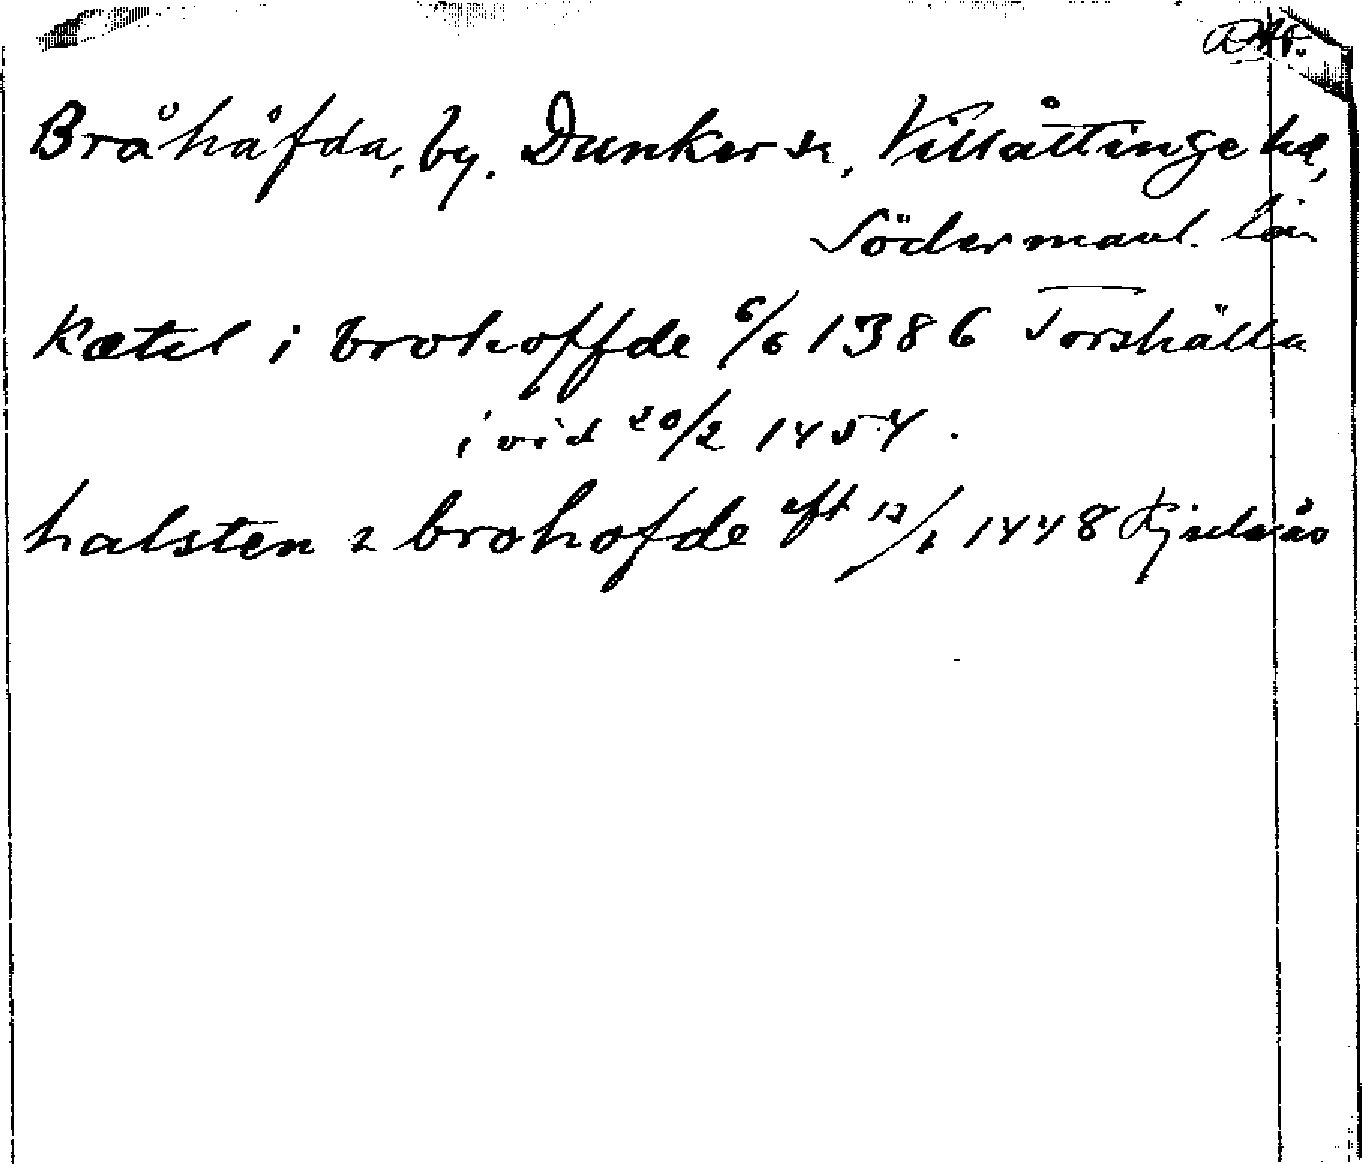 Bråhåfda, by. Dunker sn, Villåttinge hd,
Södermanl. län
Kætil i brohoffde 6/6 1386 Torshälla
i vid 20/2 1454.
halsten i brohofde eft 12/1 1448